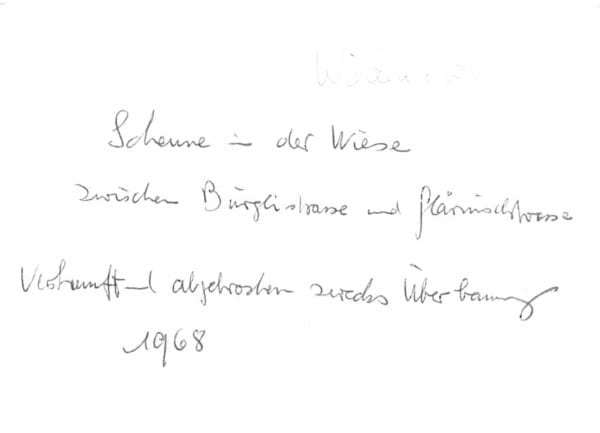 Scheune in der Wiese
zwischen Bürglistrasse und Glärnischstrasse
Verkauft und abgebrochen zwecks Überbauung
1968